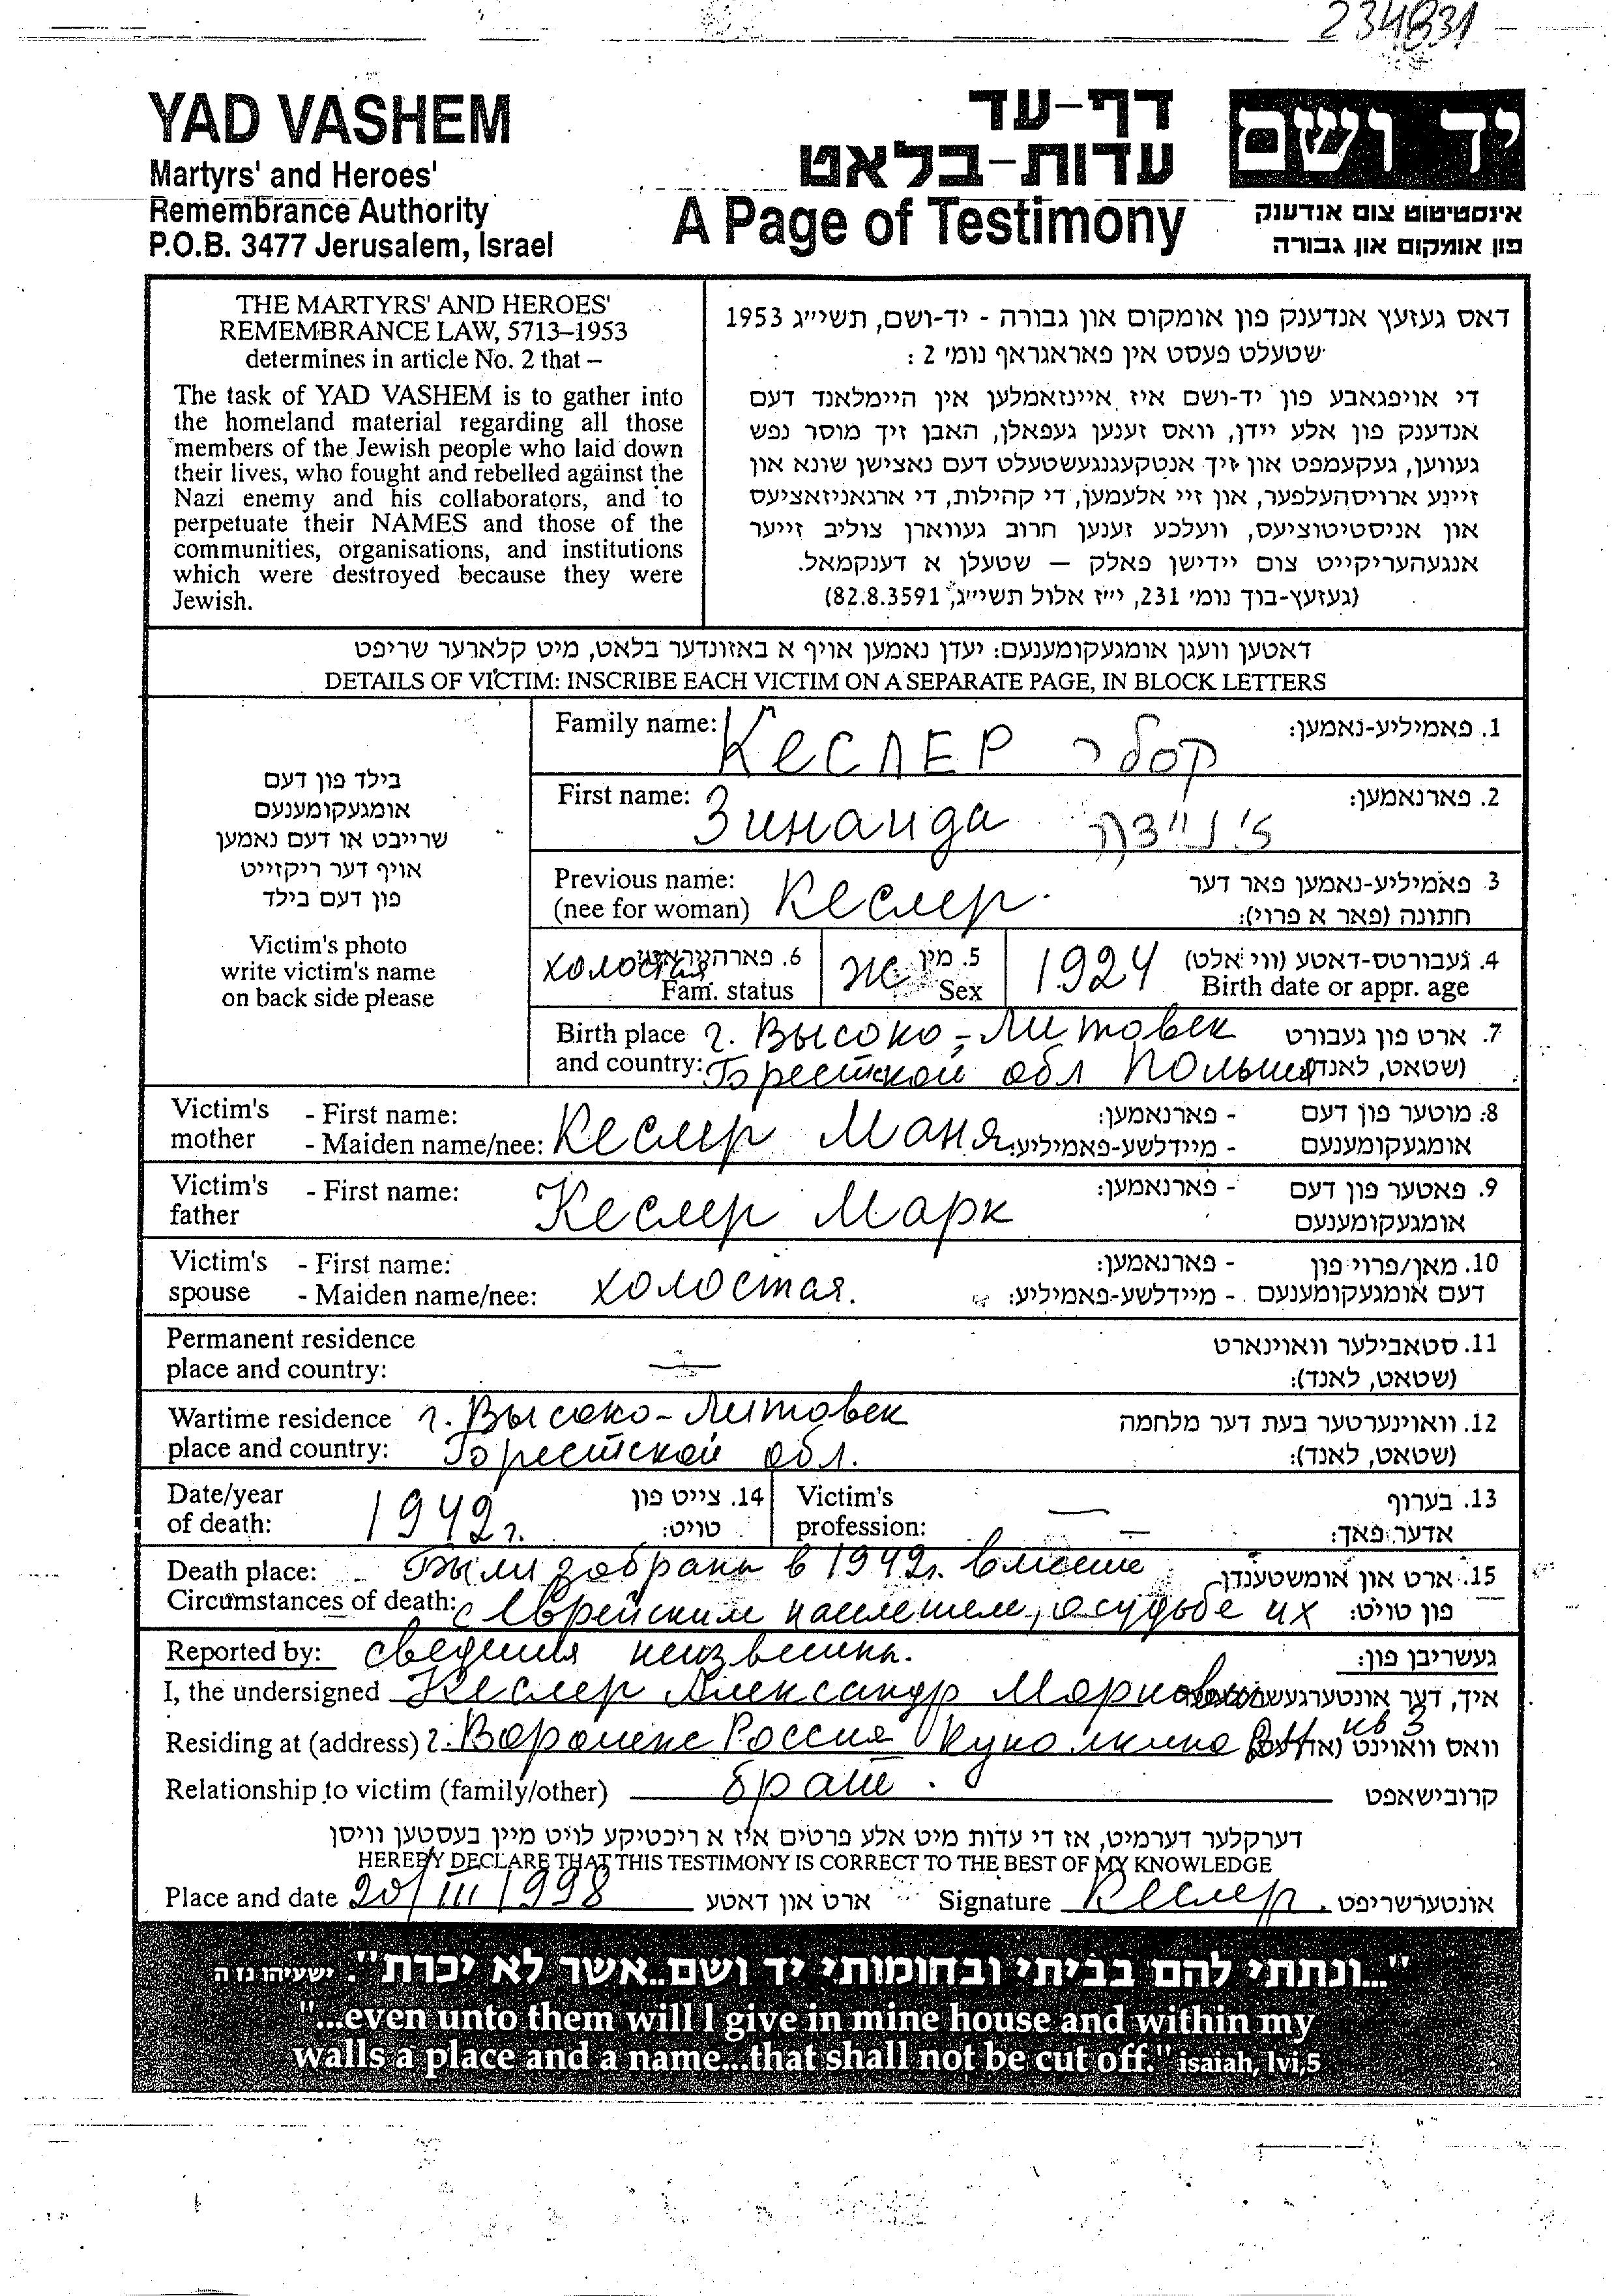 234831
YAD VASHEM
Martyrs' and Heroes'
Remembrance Authority
P.O.B. 3477 Jerusalem, Israel
דף-עד
עדות-בלאט
A Page of Testimony
יד ושם
אינסטיטוט צום אנדענק
פון אומקום און גבורה
THE MARTYRS' AND HEROES'
REMEMBRANCE LAW, 5713–1953
determines in article No. 2 that –
The task of YAD VASHEM is to gather into
the homeland material regarding all those
members of the Jewish people who laid down
their lives, who fought and rebelled against the
Nazi enemy and his collaborators, and to
perpetuate their NAMES and those of the
communities, organisations, and institutions
which were destroyed because they were
Jewish.
דאס געזעץ אנדענק פון אומקום און גבורה - יד-ושם, תשי״ג 1953
שטעלט פעסט אין פאראגראף נומ׳ 2 :
די אויפגאבע פון יד-ושם איז איינזאמלען אין היימלאנד דעם
אנדענק פון אלע יידן, וואס זענען געפאלן, האבן זיך מוסר נפש
געווען, געקעמפט און זיך אנטקעגנגעשטעלט דעם נאצישן שונא און
זיינע ארויסהעלפער, און זיי אלעמען, די קהילות, די ארגאניזאציעס
און אניסטיטוציעס, וועלכע זענען חרוב געווארן צוליב זייער
אנגעהעריקייט צום יידישן פאלק — שטעלן א דענקמאל.
(געזעץ-בוך נומ׳ 231, י״ז אלול תשי״ג, 82.8.3591)
דאטען וועגן אומגעקומענעם: יעדן נאמען אויף א באזונדער בלאט, מיט קלארער שריפט
DETAILS OF VICTIM: INSCRIBE EACH VICTIM ON A SEPARATE PAGE, IN BLOCK LETTERS
בילד פון דעם
אומגעקומענעם
שרייבט או דעם נאמען
אויף דער ריקזייט
פון דעם בילד
Victim's photo
write victim's name
on back side please
Family name: КЕСЛЕР קסלר 1. פאמיליע-נאמען:
First name: Зинаида זינײדה 2. פארנאמען:
Previous name: 3 פאמיליע-נאמען פאר דער
(nee for woman) Кеслер. חתונה (פאר א פרוי):
холостая 6. פארהייראטעט ж 5. מין 1924 4. געבורטס-דאטע (ווי אלט)
Fam. status Sex Birth date or appr. age
Birth place г. Высоко-Литовск 7. ארט פון געבורט
and country: Брестской обл Польша (שטאט, לאנד)
Victim's - First name: - פארנאמען: 8. מוטער פון דעם
mother - Maiden name/nee: Кеслер Маня - מיידלשע-פאמיליע: אומגעקומענעם
Victim's - First name: - פארנאמען: 9. פאטער פון דעם
father Кеслер Марк אומגעקומענעם
Victim's - First name: - פארנאמען: 10. מאן/פרוי פון
spouse - Maiden name/nee: холостая. - מיידלשע-פאמיליע: דעם אומגעקומענעם
Permanent residence 11. סטאבילער וואוינארט
place and country: — (שטאט, לאנד):
Wartime residence г. Высоко-Литовск 12. וואוינערטער בעת דער מלחמה
place and country: Брестской обл. (שטאט, לאנד):
Date/year 14. צייט פון Victim's — 13. בערוף
of death: 1942г. טויט: profession: — אדער פאך:
Death place: Были забраны в 1942г. вместе 15. ארט און אומשטענדן
Circumstances of death: с Еврейским населением, о судьбе их פון טויט:
Reported by: сведения неизвестны. געשריבן פון:
I, the undersigned Кеслер Александр Маркович איך, דער אונטערגעשריבענער
Residing at (address) г. Воронеж Россия кв 3 וואס וואוינט
Relationship to victim (family/other) брат. קרובישאפט
דערקלער דערמיט, אז די עדות מיט אלע פרטים איז א ריכטיקע לויט מיין בעסטען וויסן
HEREBY DECLARE THAT THIS TESTIMONY IS CORRECT TO THE BEST OF MY KNOWLEDGE
Place and date 20/III 1998 ארט און דאטע Signature Кеслер. אונטערשריפט
"...ונתתי להם בביתי ובחומותי יד ושם..אשר לא יכרת". ישעיהו נו ה
"...even unto them will I give in mine house and within my
walls a place and a name...that shall not be cut off." isaiah, lvi,5